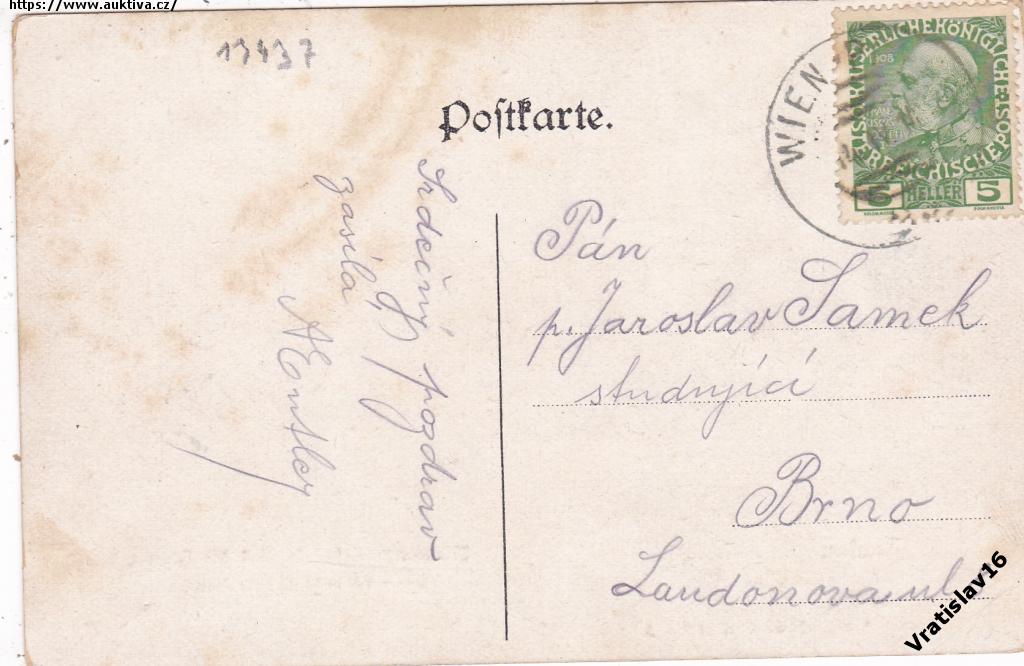 https://www.auktiva.cz/
13437
Postkarte.
WIEN
KAISERLICHE KÖNIGLICHE ÖSTERREICHISCHE POST
1908
5 HELLER 5
Srdečný pozdrav
zasílá
Pán
p. Jaroslav Samek
studující
Brno
Laudonova ul.
Vratislav16